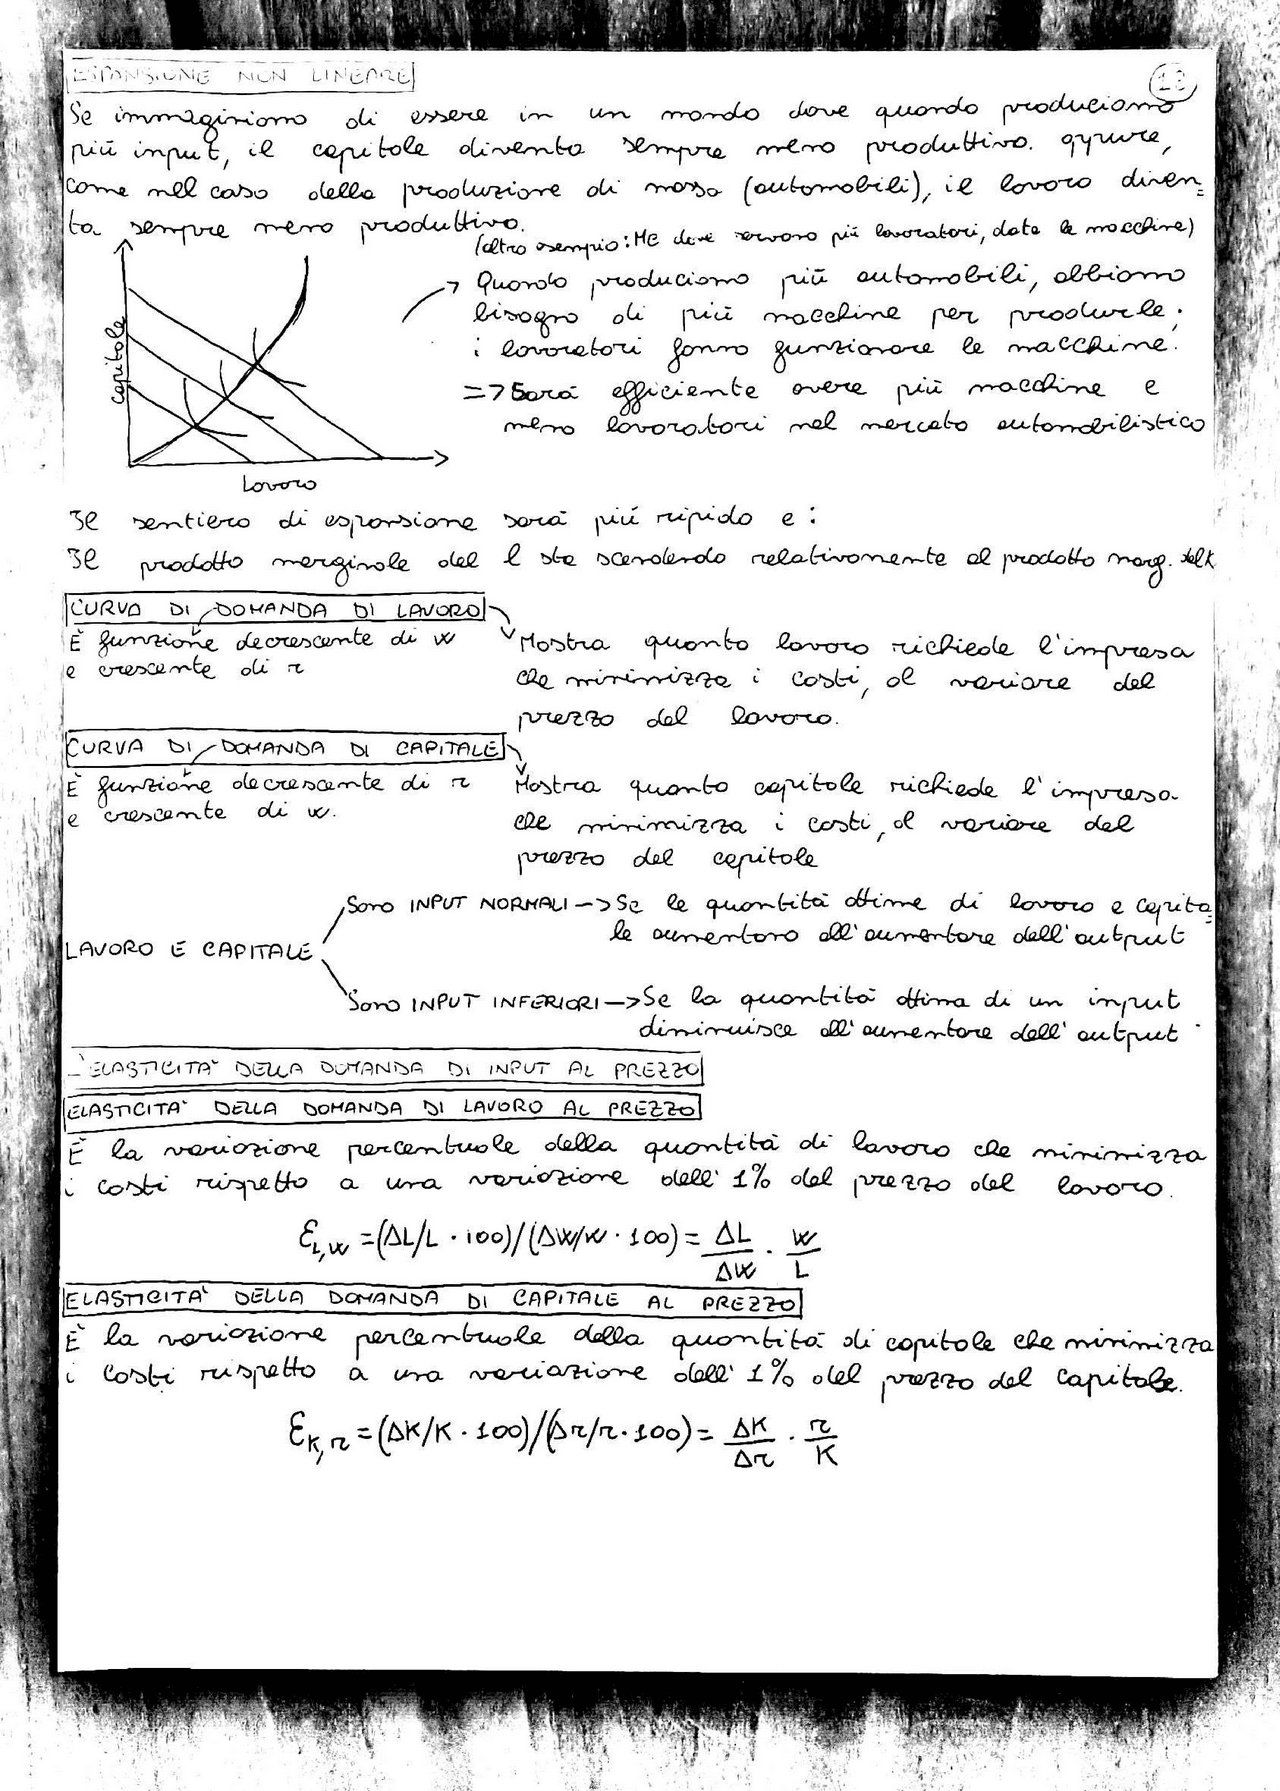 ESPANSIONE NON LINEARE
Se immaginiamo di essere in un mondo dove quando produciamo
più input, il capitale diventa sempre meno produttivo. oppure,
come nel caso della produzione di massa (automobili), il lavoro diven=
ta sempre meno produttivo.
(altro esempio: MC dove servono più lavoratori, date le macchine)
→ Quando produciamo più automobili, abbiamo
bisogno di più macchine per produrle;
i lavoratori fanno funzionare le macchine.
=> Sarà efficiente avere più macchine e
meno lavoratori nel mercato automobilistico
capitale
Lavoro
Il sentiero di espansione sarà più ripido e:
Il prodotto marginale del l sta scendendo relativamente al prodotto marg. del K
CURVA DI DOMANDA DI LAVORO
È funzione decrescente di w
e crescente di r
Mostra quanto lavoro richiede l'impresa
che minimizza i costi, al variare del
prezzo del lavoro.
CURVA DI DOMANDA DI CAPITALE
È funzione decrescente di r
e crescente di w.
Mostra quanto capitale richiede l'impresa
che minimizza i costi, al variare del
prezzo del capitale
Sono INPUT NORMALI -> Se le quantità ottime di lavoro e capita=
le aumentano all'aumentare dell'output
LAVORO E CAPITALE
Sono INPUT INFERIORI -> Se la quantità ottima di un input
diminuisce all'aumentare dell'output
L'ELASTICITA' DELLA DOMANDA DI INPUT AL PREZZO
ELASTICITA' DELLA DOMANDA DI LAVORO AL PREZZO
È la variazione percentuale della quantità di lavoro che minimizza
i costi rispetto a una variazione dell'1% del prezzo del lavoro.
Ɛ_L,w = (ΔL/L · 100)/(ΔW/w · 100) = ΔL/ΔW · w/L
ELASTICITA' DELLA DOMANDA DI CAPITALE AL PREZZO
È la variazione percentuale della quantità di capitale che minimizza
i costi rispetto a una variazione dell'1% del prezzo del capitale.
Ɛ_K,r = (ΔK/K · 100)/(Δr/r · 100) = ΔK/Δr · r/K